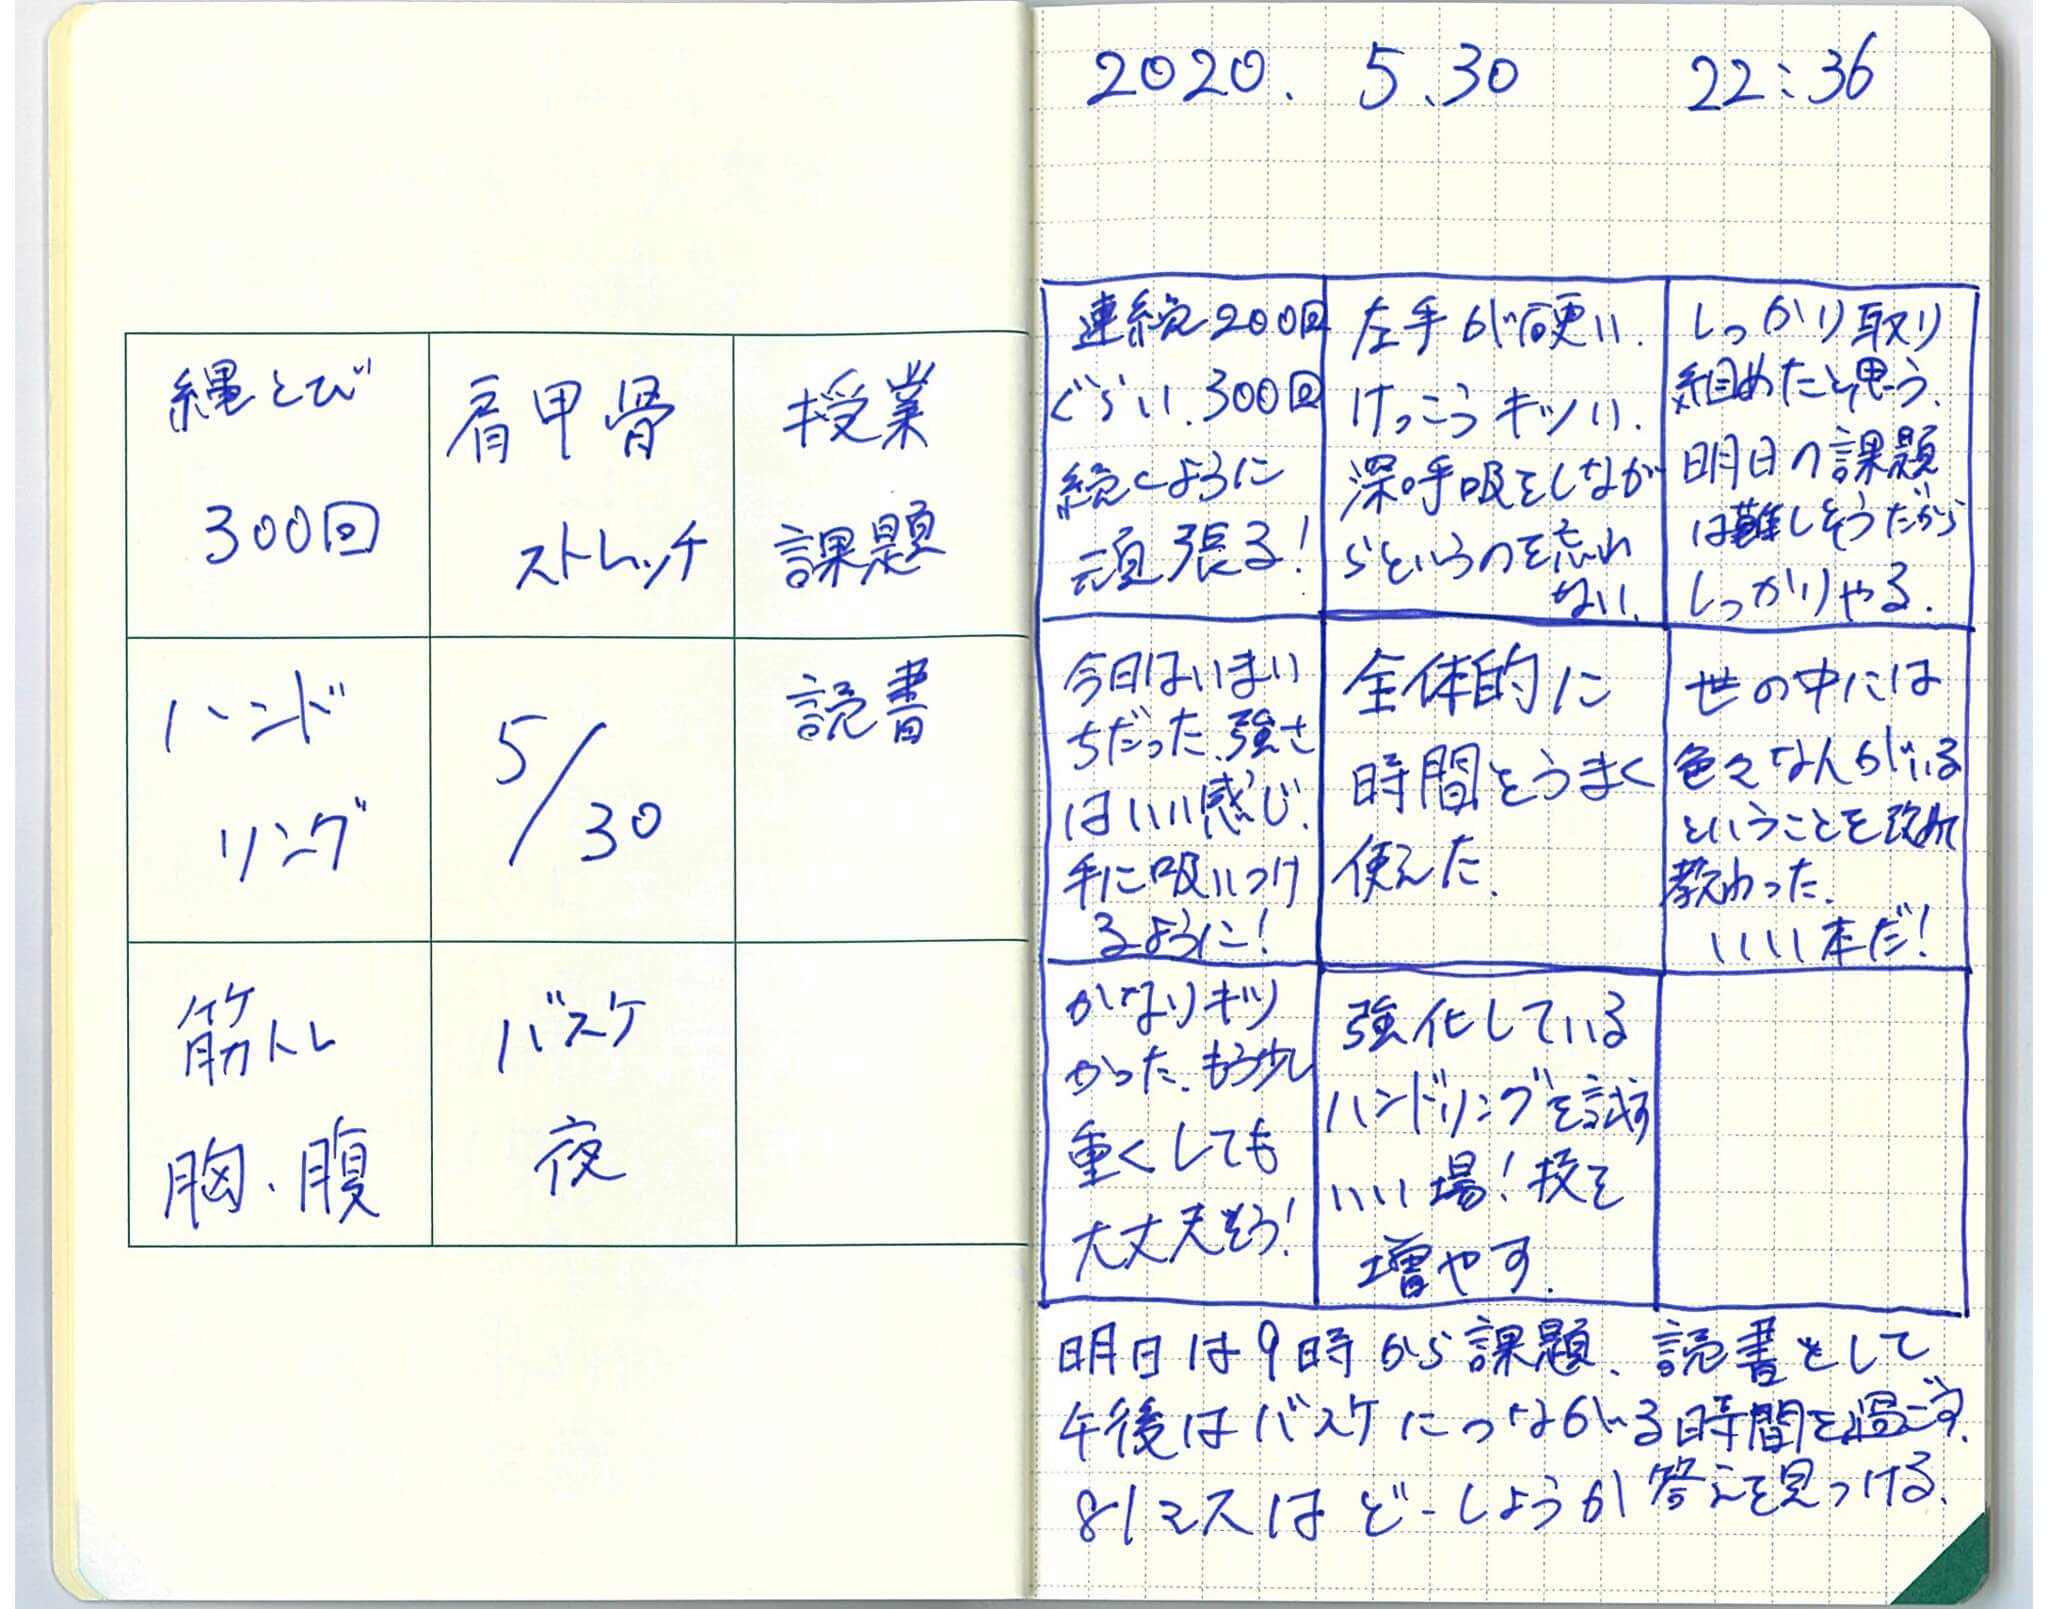 縄とび
300回
肩甲骨
ストレッチ
授業
課題
ハンド
リング
5/30
読書
筋トレ
胸・腹
バスケ
夜
2020. 5.30 22:36
連続200回
ぐらい.300回
続くように
頑張る!
左手が硬い.
けっこうキツい.
深呼吸をしなが
らというのを忘れ
ない.
しっかり取り
組めたと思う.
明日の課題
は難しそうだから
しっかりやる.
今日はいまい
ちだった.強さ
はいい感じ.
手に吸いつけ
るように!
全体的に
時間をうまく
使えた.
世の中には
色々なんがいる
ということを改めて
教わった.
いい本だ!
かなりキツ
かった.もう少し
重くしても
大丈夫そう!
強化している
ハンドリングを試す
いい場!技を
増やす.
明日は9時から課題、読書をして
午後はバスケにつながる時間を過ごす.
81マスはどーしようか答えを見つける.